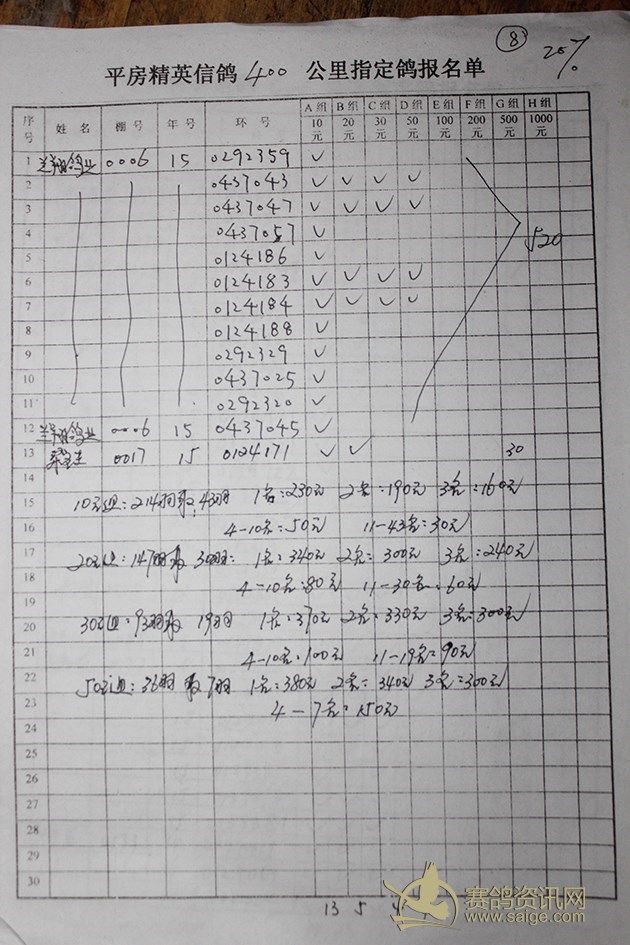 ⑧ 20%
平房精英信鸽 400 公里指定鸽报名单
序号 姓名 棚号 年号 环号 A组10元 B组20元 C组30元 D组50元 E组100元 F组200元 G组500元 H组1000元
1 翔鸽业 0006 15 0292359 ✓
2 0437043 ✓ ✓ ✓ ✓
3 0437047 ✓ ✓ ✓ ✓ 520
4 0437057 ✓
5 0124186 ✓
6 0124183 ✓ ✓ ✓ ✓
7 0124184 ✓ ✓ ✓ ✓
8 0124188 ✓
9 0292329 ✓
10 0437025 ✓
11 0292320 ✓
12 翔鸽业 0006 15 0437045 ✓
13 0017 15 0124171 ✓ ✓ 30
14
15 10元组:214羽取43羽 1名:230元 2名:190元 3名:160元
16 4-10名:50元 11-43名:30元
17 20元组:147羽取30羽: 1名:340元 2名:300元 3名:240元
18 4-10名:80元 11-30名:60元
19
20 30元组:93羽取19羽 1名:370元 2名:330元 3名:300元
21 4-10名:100元 11-19名:90元
22 50元组:36羽取7羽 1名:380元 2名:340元 3名:300元
23 4-7名:150元
24
25
26
27
28
29
30
13 5 4
赛鸽资讯网
www.saige.com